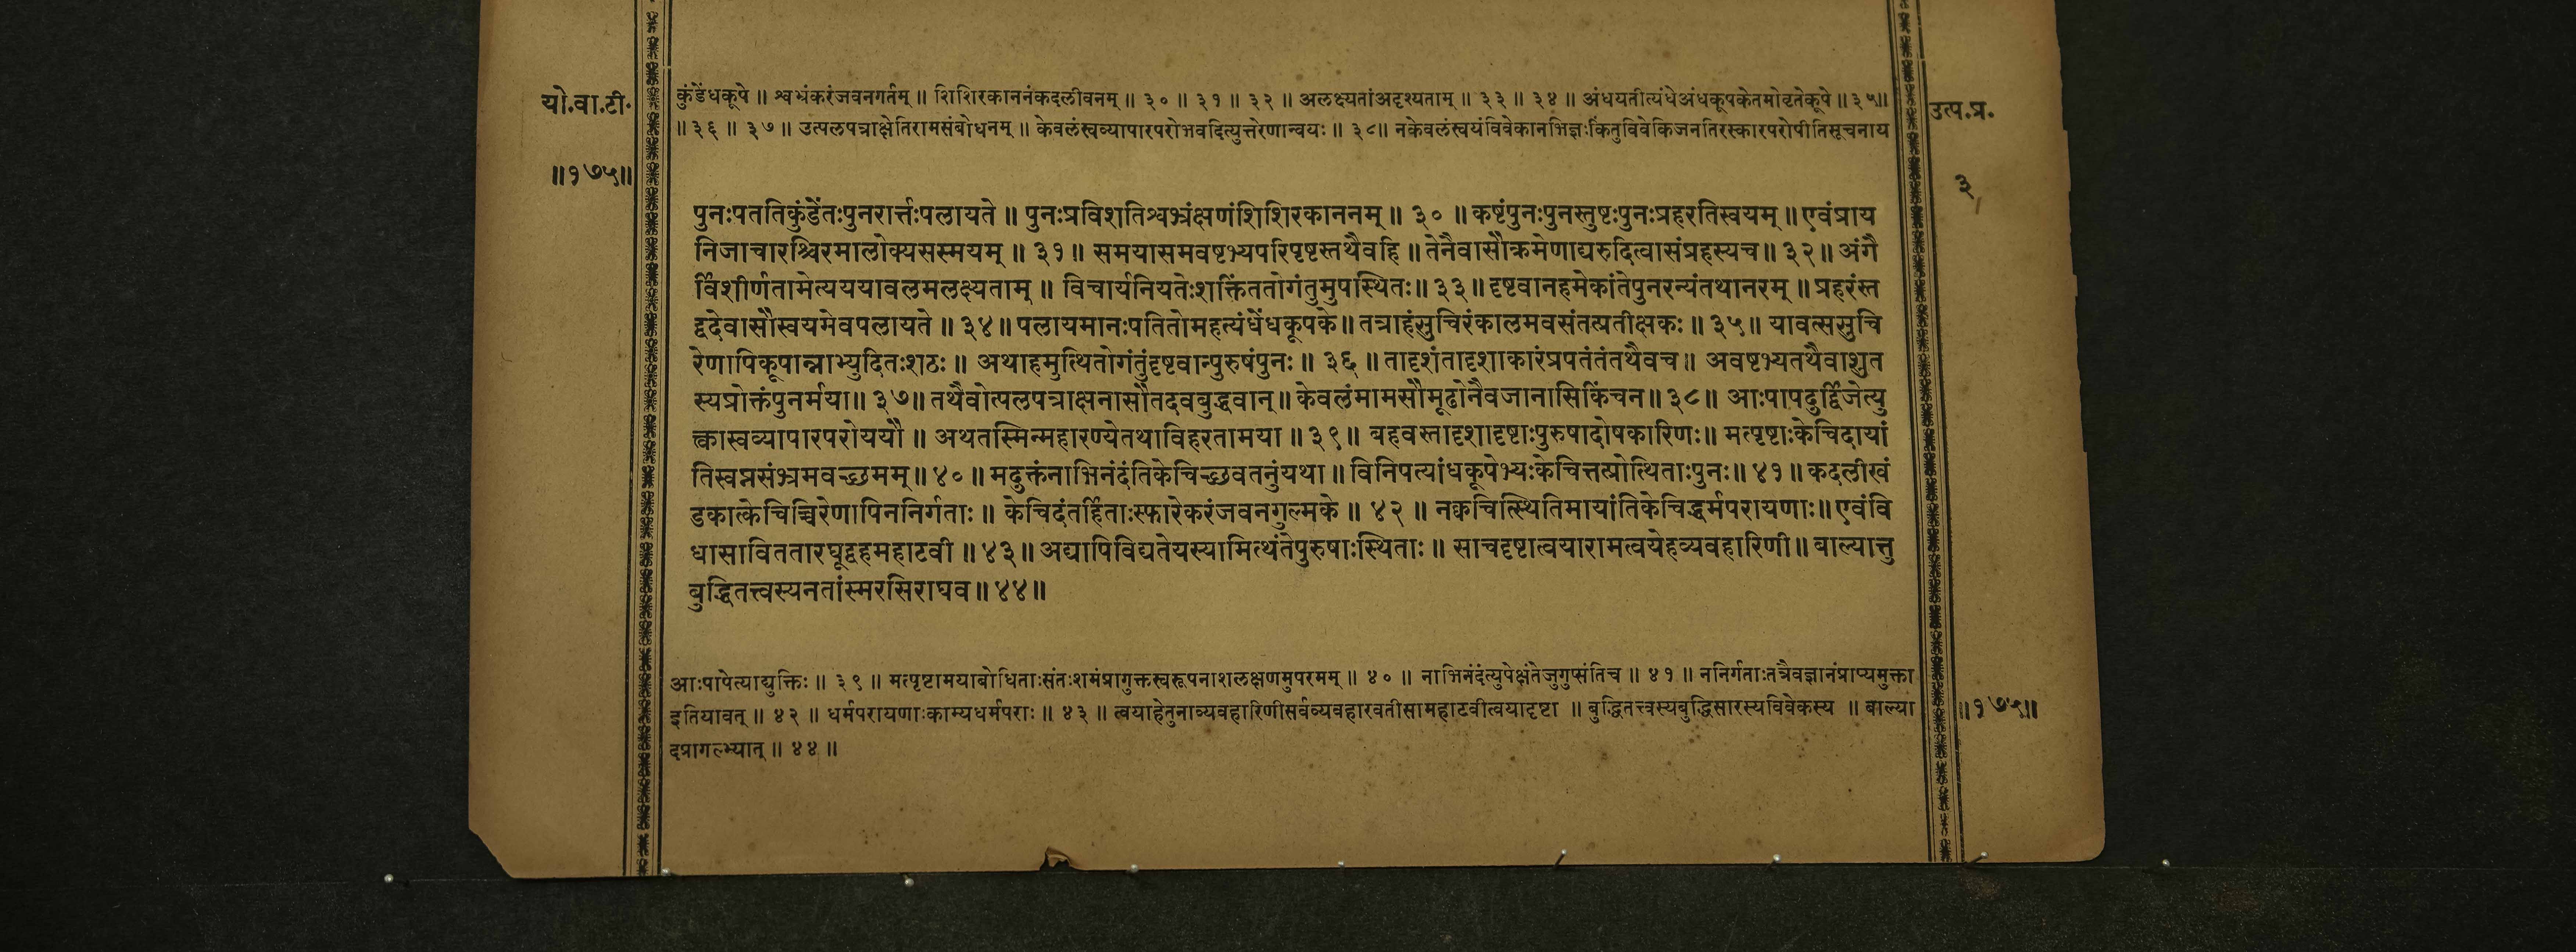 यो.वा.टी.
॥१७५॥
कुंडेंधकूपे ॥ श्वभ्रंकरंजवनगर्तम् ॥ शिशिरकाननंकदलीवनम् ॥ ३० ॥ ३१ ॥ ३२ ॥ अलक्ष्यतांअदृश्यताम् ॥ ३३ ॥ ३४ ॥ अंधयतीत्यंधेअंधकूपकेतमोवृतेकूपे ॥ ३५॥
॥ ३६ ॥ ३७ ॥ उत्पलपत्राक्षेतिरामसंबोधनम् ॥ केवलंस्वव्यापारपरोभवदित्युत्तरेणान्वयः ॥ ३८॥ नकेवलंस्वयंविवेकानभिज्ञःकिंतुविवेकिजनतिरस्कारपरोपीतिसूचनाय
उत्प.प्र.
३
पुनःपततिकुंडेंतःपुनरार्त्तःपलायते ॥ पुनःप्रविशतिश्वभ्रंक्षणंशिशिरकाननम् ॥ ३० ॥ कष्टंपुनःपुनस्तुष्टःपुनःप्रहरतिस्वयम् ॥ एवंप्राय
निजाचारश्चिरमालोक्यसस्मयम् ॥ ३१॥ समयासमवष्टभ्यपरिपृष्टस्तथैवहि ॥ तेनैवासौक्रमेणाद्यरुदित्वासंप्रहस्यच॥ ३२॥ अंगै
र्विशीर्णतामेत्यययावलमलक्ष्यताम् ॥ विचार्यनियतेःशक्तिंततोगंतुमुपस्थितः॥ ३३॥ दृष्टवानहमेकांतेपुनरन्यंतथानरम् ॥ प्रहरंस्त
द्वदेवासौस्वयमेवपलायते ॥ ३४॥ पलायमानःपतितोमहत्यंधेंधकूपके॥ तत्राहंसुचिरंकालमवसंतत्प्रतीक्षकः ॥ ३५॥ यावत्ससुचि
रेणापिकूपान्नाभ्युदितःशठः ॥ अथाहमुत्थितोगंतुंदृष्टवान्पुरुषंपुनः ॥ ३६ ॥ तादृशंतादृशाकारंप्रपतंतंतथैवच॥ अवष्टभ्यतथैवाशुत
स्यप्रोक्तंपुनर्मया॥ ३७॥ तथैवोत्पलपत्राक्षनासौतदवबुद्धवान्॥ केवलंमामसौमूढोनैवजानासिकिंचन॥ ३८॥ आःपापदुर्द्विजेत्यु
त्क्वास्वव्यापारपरोययौ ॥ अथतस्मिन्महारण्येतथाविहरतामया ॥ ३९॥ बहवस्तादृशादृष्टाःपुरुषादोषकारिणः॥ मत्पृष्टाःकेचिदायां
तिस्वप्नसंभ्रमवच्छमम्॥ ४०॥ मदुक्तंनाभिनंदंतिकेचिच्छवतनुंयथा॥ विनिपत्यांधकूपेभ्यःकेचित्तत्प्रोत्थिताःपुनः॥ ४१॥ कदलीखं
डकात्केचिच्चिरेणापिननिर्गताः ॥ केचिदंतर्हिताःस्फारेकरंजवनगुल्मके ॥ ४२ ॥ नक्वचित्स्थितिमायांतिकेचिद्धर्मपरायणाः॥ एवंवि
धासाविततारघूद्वहमहाटवी ॥ ४३॥ अद्यापिविद्यतेयस्यामित्थंतेपुरुषाःस्थिताः ॥ साचदृष्टात्वयारामत्वयेहव्यवहारिणी॥ बाल्यात्तु
बुद्धितत्त्वस्यनतांस्मरसिराघव॥ ४४॥
आःपापेत्याद्युक्तिः ॥ ३९॥ मत्पृष्टामयाबोधिताःसंतःशमंप्रागुक्तस्वरूपनाशलक्षणमुपरमम् ॥ ४० ॥ नाभिनंदंत्युपेक्षंतेजुगुप्संतिच ॥ ४१ ॥ ननिर्गताःतत्रैवज्ञानंप्राप्यमुक्ता
इतियावत् ॥ ४२ ॥ धर्मपरायणाःकाम्यधर्मपराः ॥ ४३ ॥ त्वयाहेतुनाव्यवहारिणीसर्वव्यवहारवतीसामहाटवीत्वयादृष्टा ॥ बुद्धितत्त्वस्यबुद्धिसारस्यविवेकस्य ॥ बाल्या
दप्रागल्भ्यात् ॥ ४४ ॥
॥१७५॥